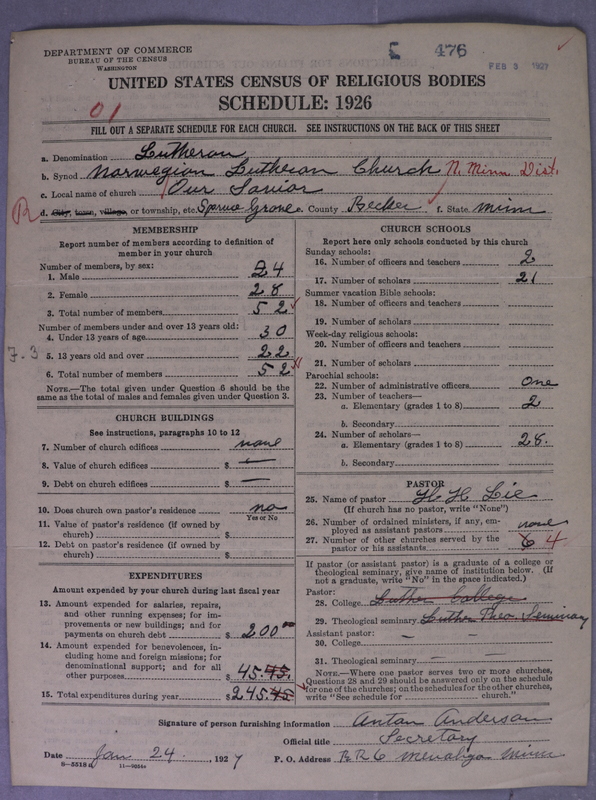 DEPARTMENT OF COMMERCE
BUREAU OF THE CENSUS
WASHINGTON
476
FEB 3 1927
UNITED STATES CENSUS OF RELIGIOUS BODIES
SCHEDULE: 1926
01
FILL OUT A SEPARATE SCHEDULE FOR EACH CHURCH. SEE INSTRUCTIONS ON THE BACK OF THIS SHEET
a. Denomination Lutheran
b. Synod Norwegian Lutheran Church N. Minn. Dist.
c. Local name of church Our Savior
R d. City, town, village, or township, etc. Spruce Grove e. County Becker f. State Minn
MEMBERSHIP
Report number of members according to definition of
member in your church
Number of members, by sex:
1. Male 24
2. Female 28
3. Total number of members 52
Number of members under and over 13 years old:
4. Under 13 years of age 30
7.3
5. 13 years old and over 22
6. Total number of members 52
NOTE.—The total given under Question 6 should be
same as the total of males and females given under Question 3.
CHURCH BUILDINGS
See instructions, paragraphs 10 to 12
7. Number of church edifices none
8. Value of church edifices $ —
9. Debt on church edifices $ —
10. Does church own pastor's residence no
Yes or No
11. Value of pastor's residence (if owned by
church) $
12. Debt on pastor's residence (if owned by
church) $
EXPENDITURES
Amount expended by your church during last fiscal year
13. Amount expended for salaries, repairs,
and other running expenses; for im-
provements or new buildings; and for
payments on church debt $ 200.00
14. Amount expended for benevolences, in-
cluding home and foreign missions; for
denominational support; and for all
other purposes $ 45.45.
15. Total expenditures during year $ 245.45
CHURCH SCHOOLS
Report here only schools conducted by this church
Sunday schools:
16. Number of officers and teachers 2
17. Number of scholars 21
Summer vacation Bible schools:
18. Number of officers and teachers
19. Number of scholars
Week-day religious schools:
20. Number of officers and teachers
21. Number of scholars
Parochial schools:
22. Number of administrative officers One
23. Number of teachers—
a. Elementary (grades 1 to 8) 2
b. Secondary
24. Number of scholars—
a. Elementary (grades 1 to 8) 28.
b. Secondary
PASTOR
25. Name of pastor H H Lie
(If church has no pastor, write "None")
26. Number of ordained ministers, if any, em-
ployed as assistant pastors none
27. Number of other churches served by the
pastor or his assistants 6 4
If pastor (or assistant pastor) is a graduate of a college or
theological seminary, give name of institution below. (If
not a graduate, write "No" in the space indicated.)
Pastor:
28. College Luther College
29. Theological seminary Luther Theo. Seminary
Assistant pastor:
30. College — —
31. Theological seminary — —
NOTE.—Where one pastor serves two or more churches,
Questions 28 and 29 should be answered only on the schedule
for one of the churches; on the schedules for the other churches,
write "See schedule for church."
Signature of person furnishing information Anton Anderson
Official title Secretary
Date Jan 24, 1927 P. O. Address R R 6 Menahga Minn
8—5518 a 11—9054